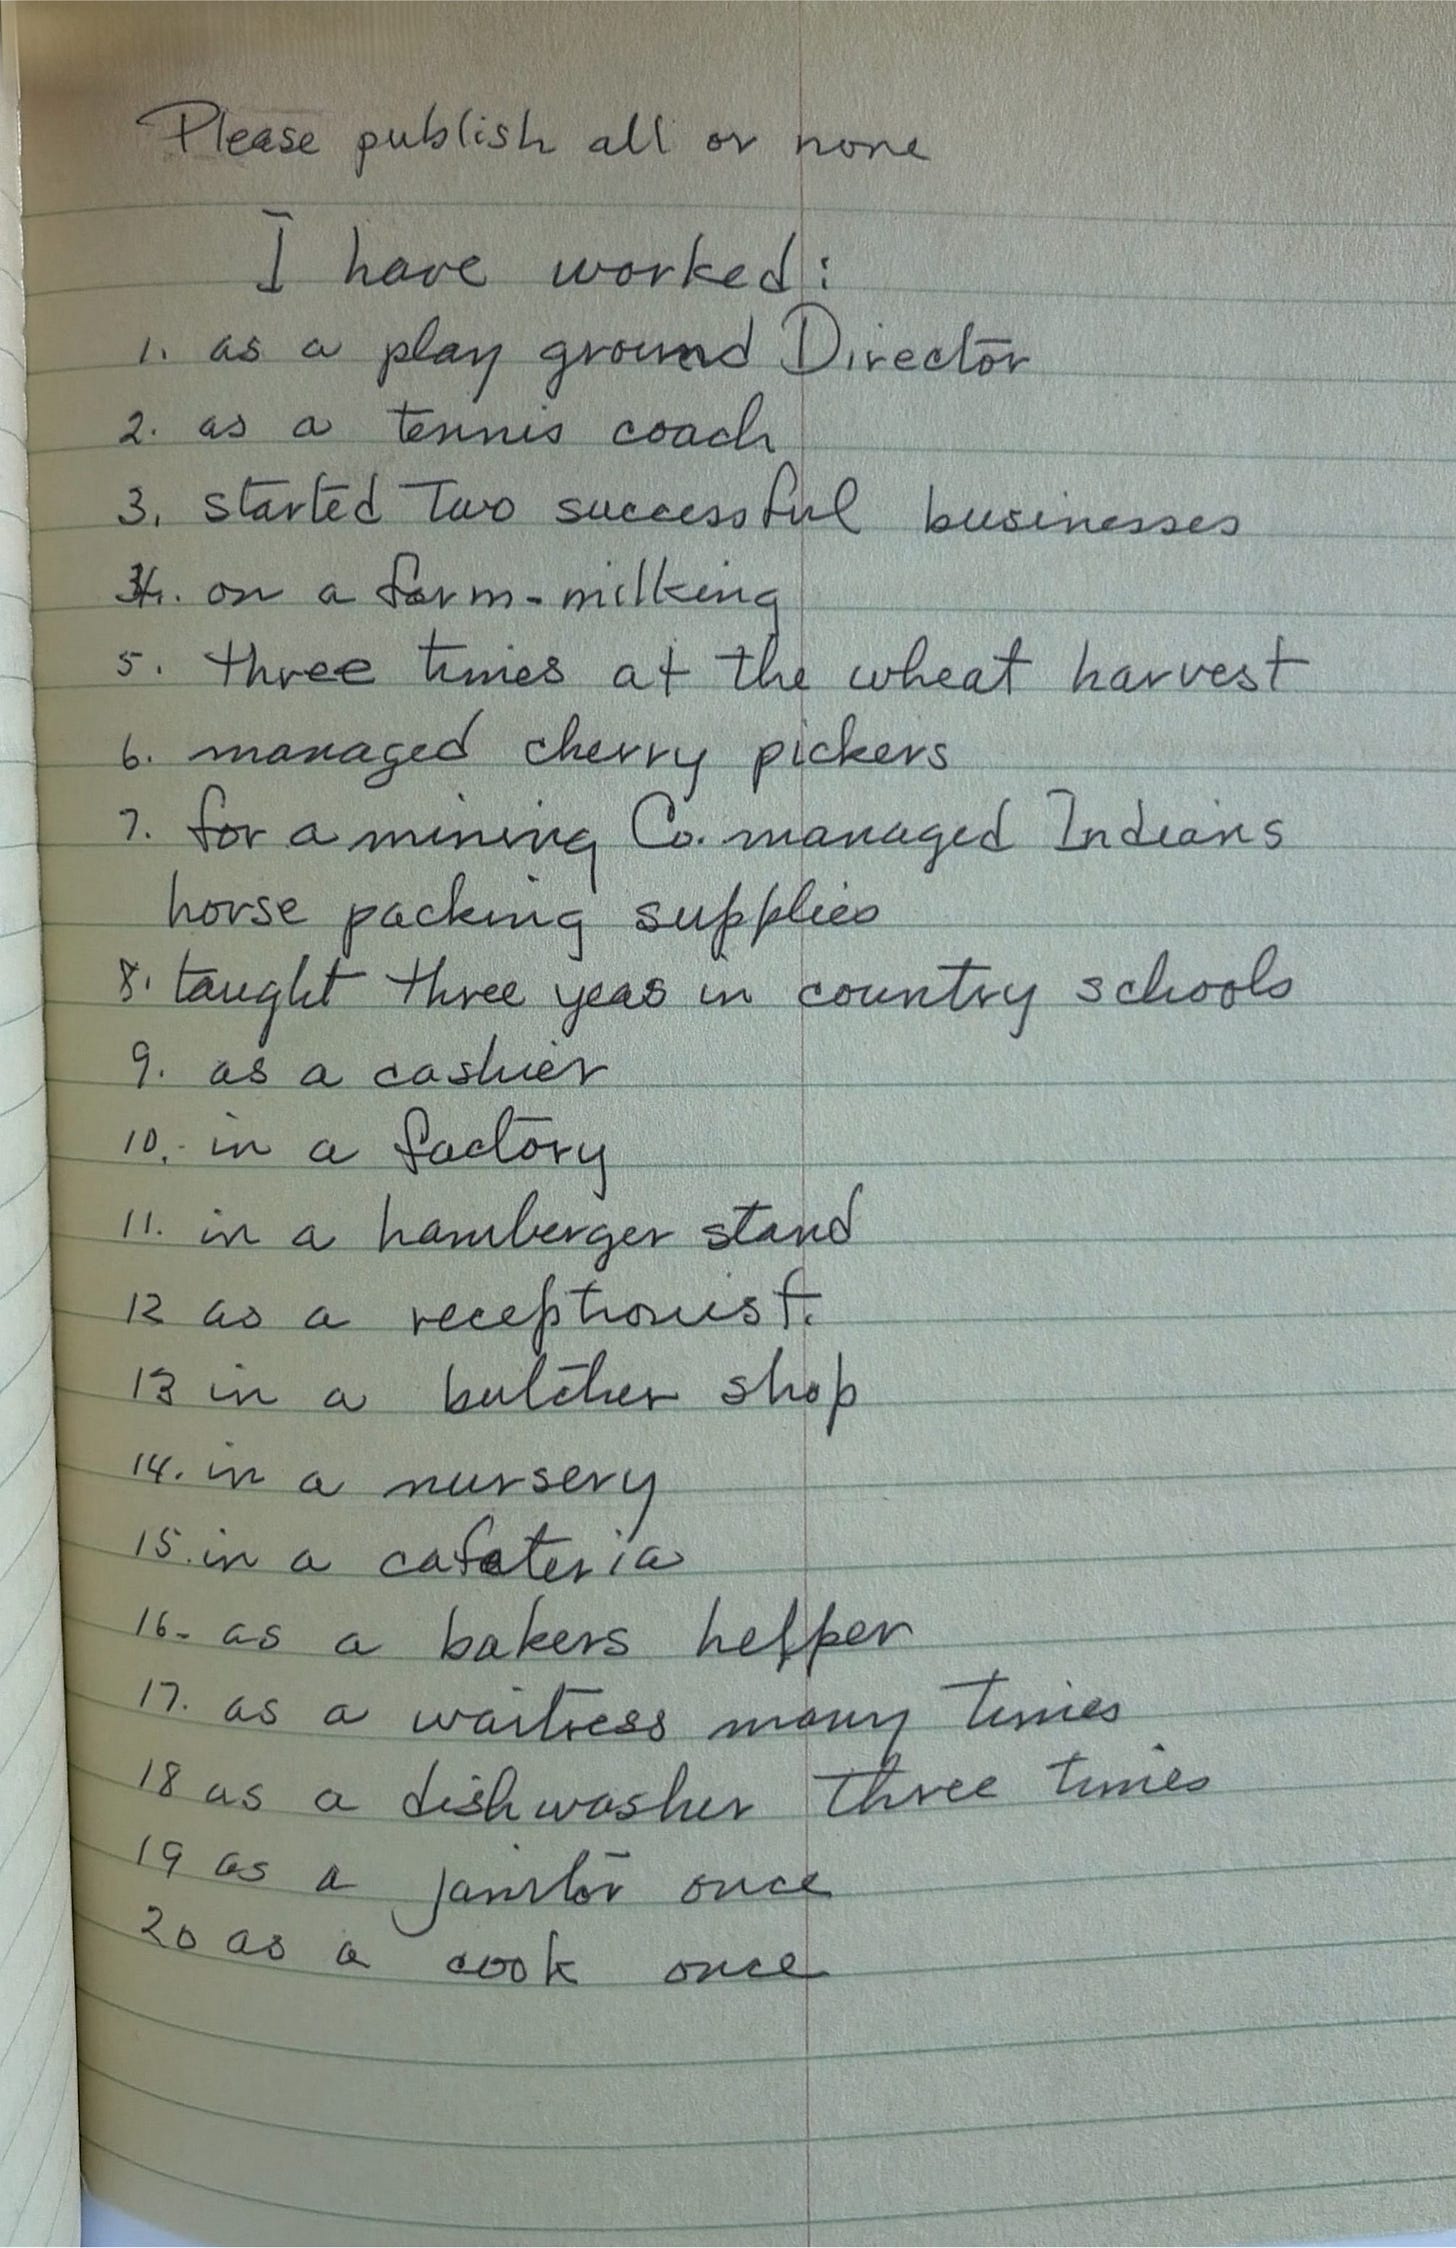 Please publish all or none
I have worked:
1. as a play ground Director
2. as a tennis coach
3. started two successful businesses
4. on a farm-milking
5. three times at the wheat harvest
6. managed cherry pickers
7. for a mining Co. managed Indians
horse packing supplies
8. taught three yeas in country schools
9. as a cashier
10. in a factory
11. in a hamberger stand
12 as a receptionist.
13 in a butcher shop
14. in a nursery
15. in a cafeteria
16- as a bakers helper
17. as a waitress many times
18 as a dishwasher three times
19 as a janitor once
20 as a cook once